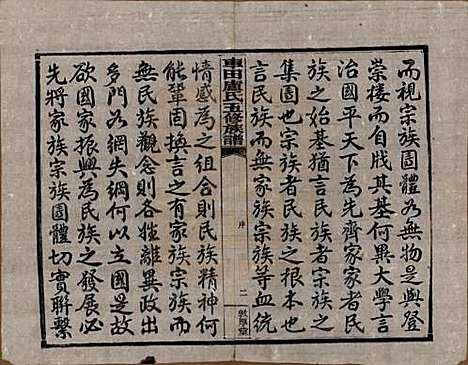 而視宗族團體為無物是與登
崇樓而自戕其基何異大學言
治國平天下為先齊家者民
族之始基猶言民族者宗族之
集團也宗族者民族之根本也
言民族而無家族宗族等血統
車田盧氏五修族譜
序
二
敦厚堂
情感為之組合則民族精神何
能鞏固換言之有家族宗族而
無民族觀念則各姓離異政出
多門為網失綱何以立國是故
欲國家振興為民族之發展必
先將家族宗族團體切實聯繫